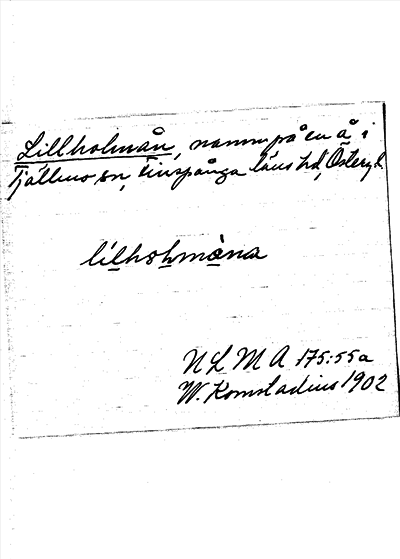 Lillholmån, namn på en å i
Tjällmo sn, Finspånga läns hd, Östergh.
lilholmåna
N L M A 175:55a
W. Komstadius 1902